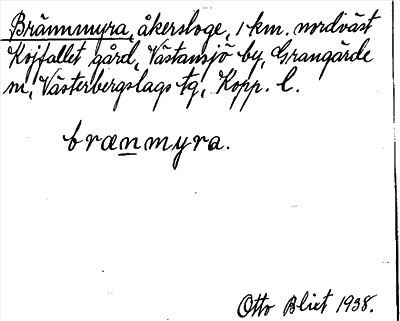 Brännmyra, åkersloge, 1 km. nordväst
Kojfallet gård, Västansjö by, Grangärde
sn, Västerbergslags tg, Kopp. l.
brænmyra.
Otto Blixt 1938.